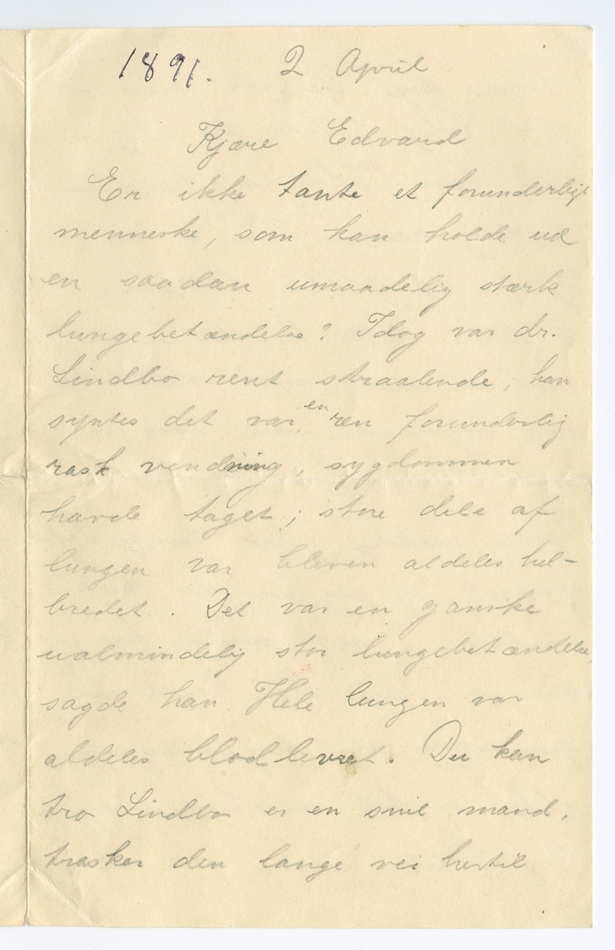 1891. 2 April
Kjære Edvard
Er ikke tante et forunderligt
menneske, som kan holde ud
en saadan umaadelig stærk
lungebetændelse? Idag var dr.
Lindbo rent straalende, han
syntes det var en ren forunderlig
rask vendning, sygdommen
havde taget; store dele af
lungen var bleven aldeles hel-
bredet. Det var en ganske
ualmindelig stor lungebetændelse,
sagde han. Hele lungen var
aldeles blodlevret. Du kan
tro Lindbo er en snil mand,
trasker den lange vei hertil